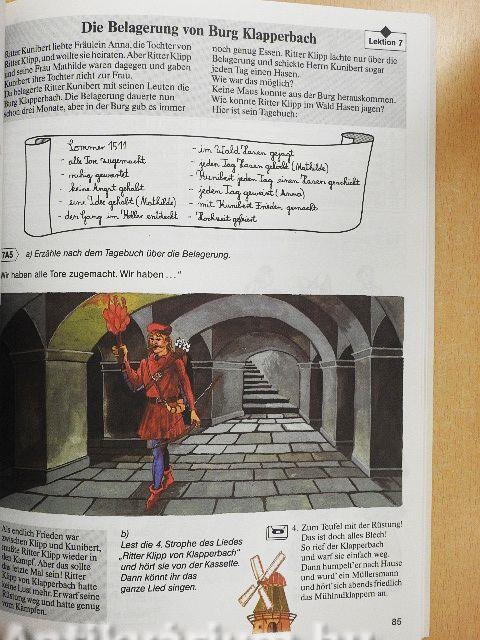 Die Belagerung von Burg Klapperbach
Lektion 7
Ritter Kunibert liebte Fräulein Anna, die Tochter von
Ritter Klipp, und wollte sie heiraten. Aber Ritter Klipp
und seine Frau Mathilde waren dagegen und gaben
Kunibert ihre Tochter nicht zur Frau.
Da belagerte Ritter Kunibert mit seinen Leuten die
Burg Klapperbach. Die Belagerung dauerte nun
schon drei Monate, aber in der Burg gab es immer
noch genug Essen. Ritter Klipp lachte nur über die
Belagerung und schickte Herrn Kunibert sogar
jeden Tag einen Hasen.
Wie war das möglich?
Keine Maus konnte aus der Burg herauskommen.
Wie konnte Ritter Klipp im Wald Hasen jagen?
Hier ist sein Tagebuch:
Sommer 1511
- alle Tore zugemacht
- ruhig gewartet
- keine Angst gehabt
- eine Idee gehabt (Mathilde)
- der Gang im Keller entdeckt
- im Wald Hasen gejagt
- jeden Tag Hasen gekocht (Mathilde)
- Kunibert jeden Tag einen Hasen geschickt
- jeden Tag geweint (Anna)
- mit Kunibert Frieden gemacht
- Hochzeit gefeiert
7A5 a) Erzähle nach dem Tagebuch über die Belagerung.
Wir haben alle Tore zugemacht. Wir haben ..."
Als endlich Frieden war
zwischen Klipp und Kunibert,
mußte Ritter Klipp wieder in
den Kampf. Aber das sollte
das letzte Mal sein! Ritter
Klipp von Klapperbach hatte
keine Lust mehr. Er warf seine
Rüstung weg und hatte genug
vom Kämpfen.
b)
Lest die 4. Strophe des Liedes
„Ritter Klipp von Klapperbach"
und hört sie von der Kassette.
Dann könnt ihr das
ganze Lied singen.
4. Zum Teufel mit der Rüstung!
Das ist doch alles Blech!
So rief der Klapperbach
und warf sie einfach weg.
Dann humpelt'er nach Hause
und wurd' ein Müllersmann
und hört'sich abends friedlich
das Mühlradklappern an.
85